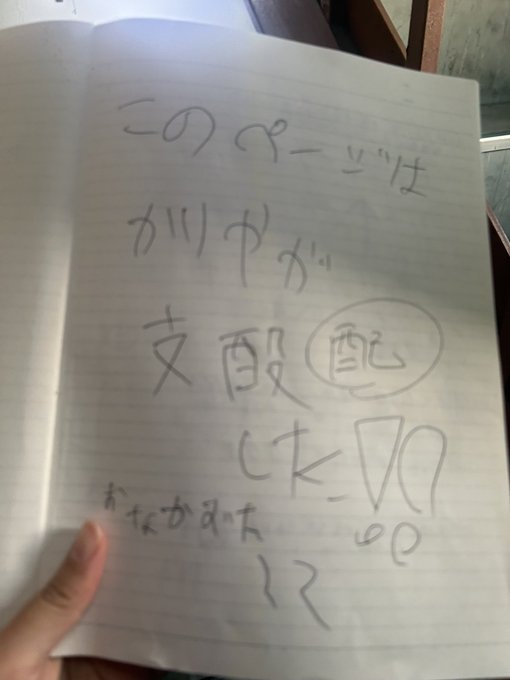 このページは
かりやが
支酸配
した!!
おなかすいた